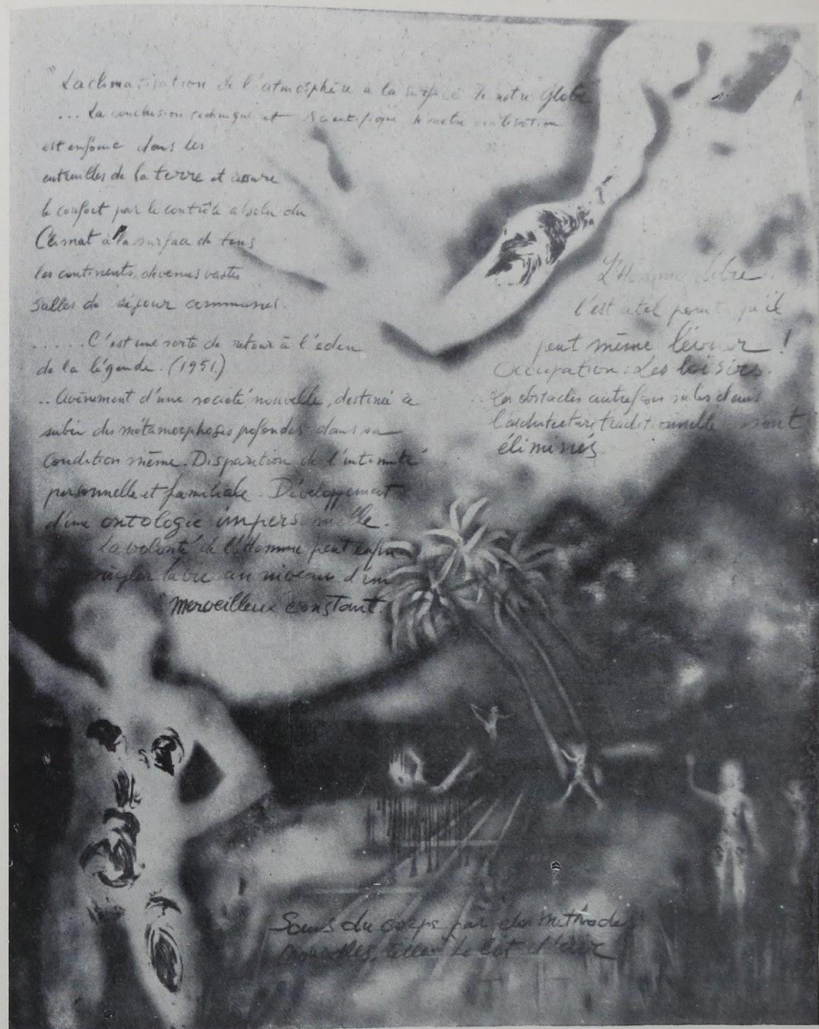 "La climatisation de l'atmosphère à la surface de notre Globe
... La conclusion technique et scientifique de notre civilisation
est enfouie dans les
entrailles de la terre et assure
le confort par le contrôle absolu du
Climat à la surface de tous
les continents, devenus vastes
salles de séjour communes.
..... C'est une sorte de retour à l'eden
de la légende. (1951)
.. Avènement d'une societé nouvelle, destiné à
subir des métamorphoses profondes dans sa
condition même. Disparition de l'intimité
personnelle et familiale. Développement
d'une ontologie impersonnelle.
La volonté de l'Homme peut enfin
régler la vie au niveau d'un
"Merveilleux constant"
L'Homme libre.
l'est à tel point qu'il
peut même léviter !
Occupation: Les loisirs.
Les obstacles autrefois subis dans
l'architecture traditionnelle sont
éliminés
Soins du corps par des méthodes
nouvelles, telles le lit d'air